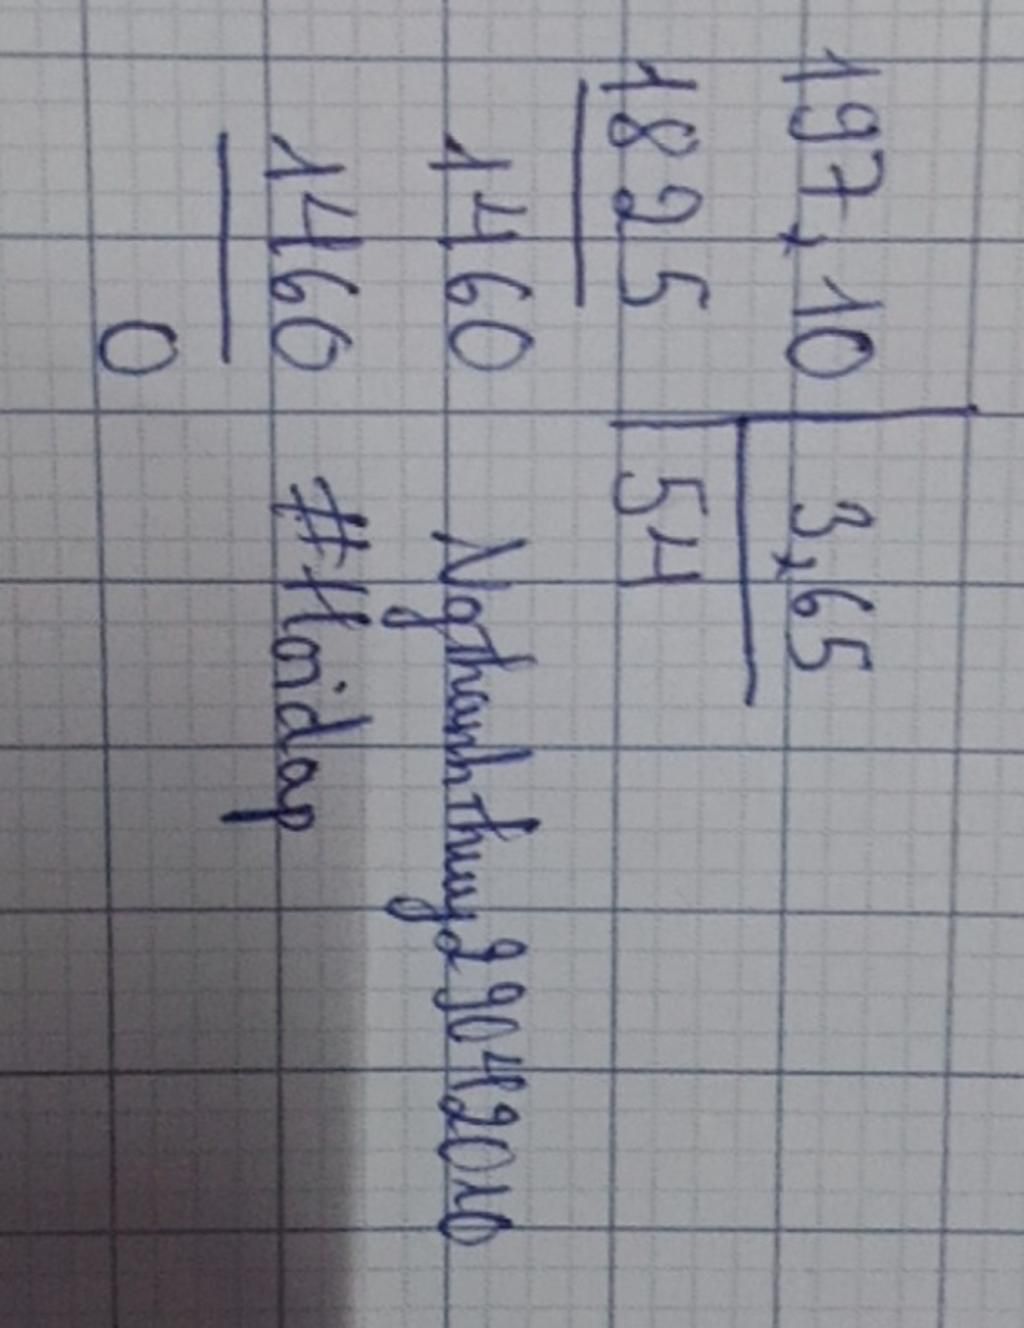 197,10 3,65
1825 54
1460
1460
0
Ngthanhthuy29042010
#Hoidap